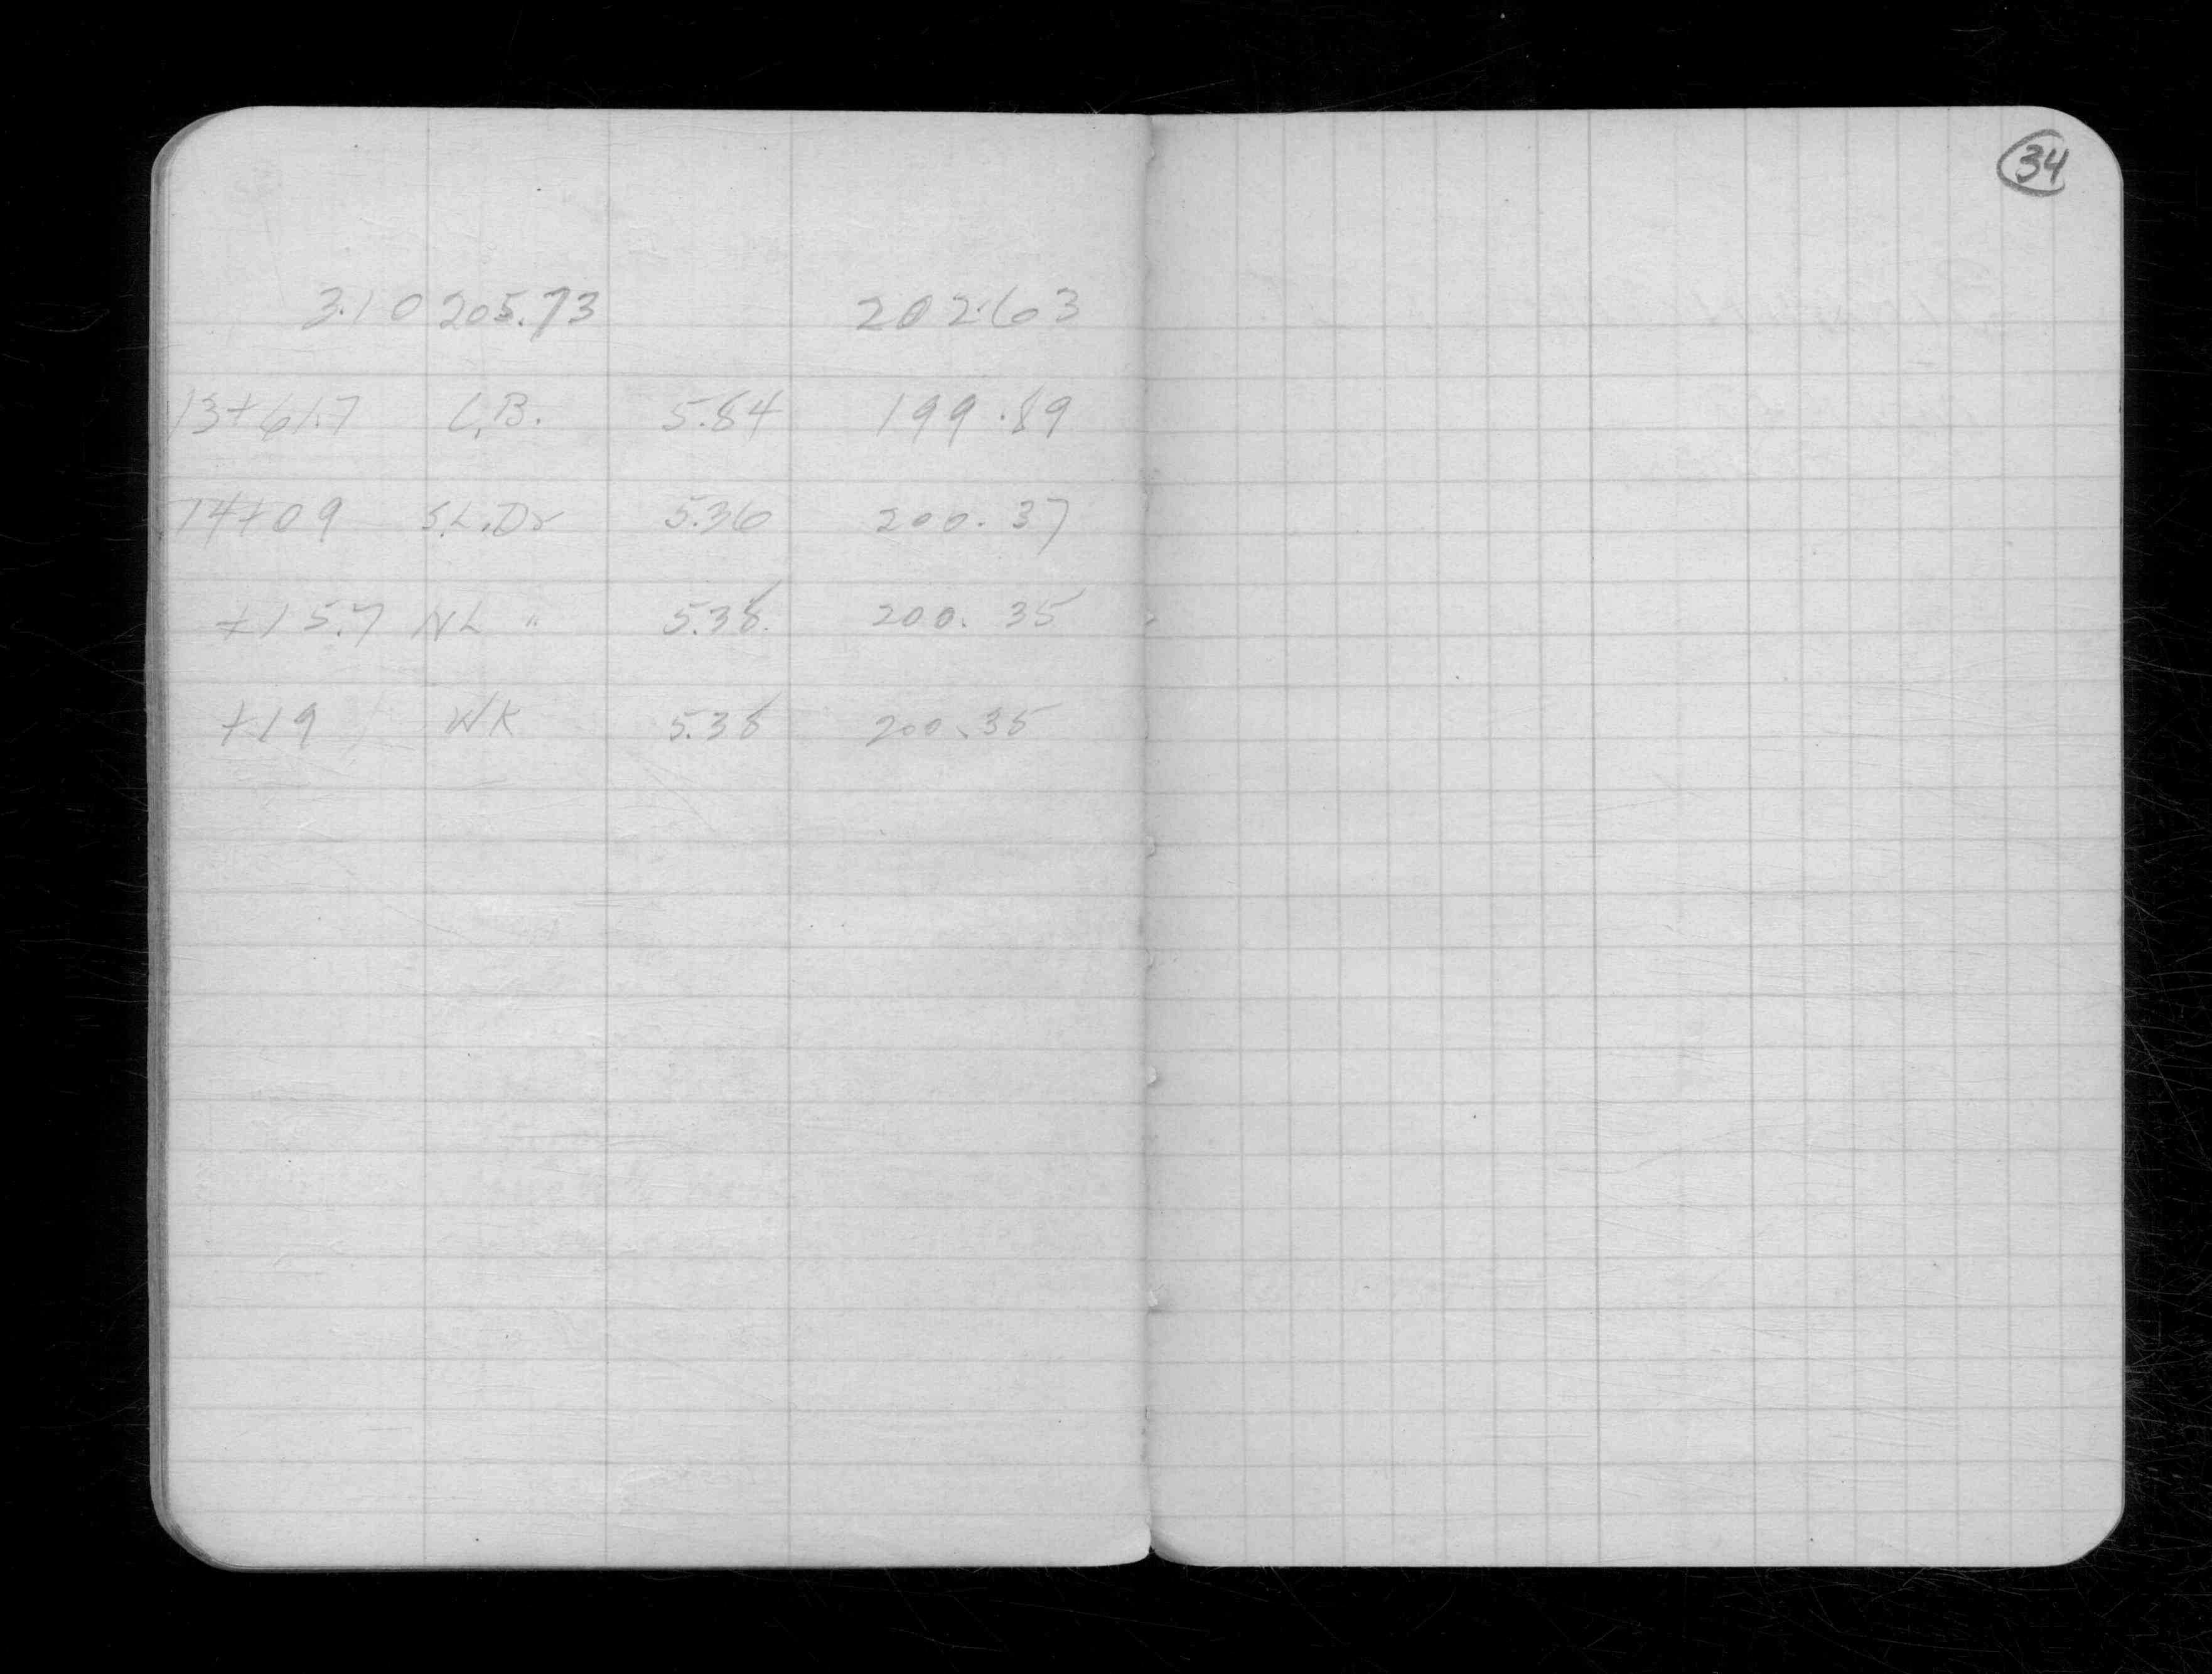 34
3.10 205.73 202.63
13+61.7 C.B. 5.84 199.89
14+09 S.L.Dr 5.36 200.37
+15.7 NL " 5.38 200.35
+19 WK 5.38 200.35